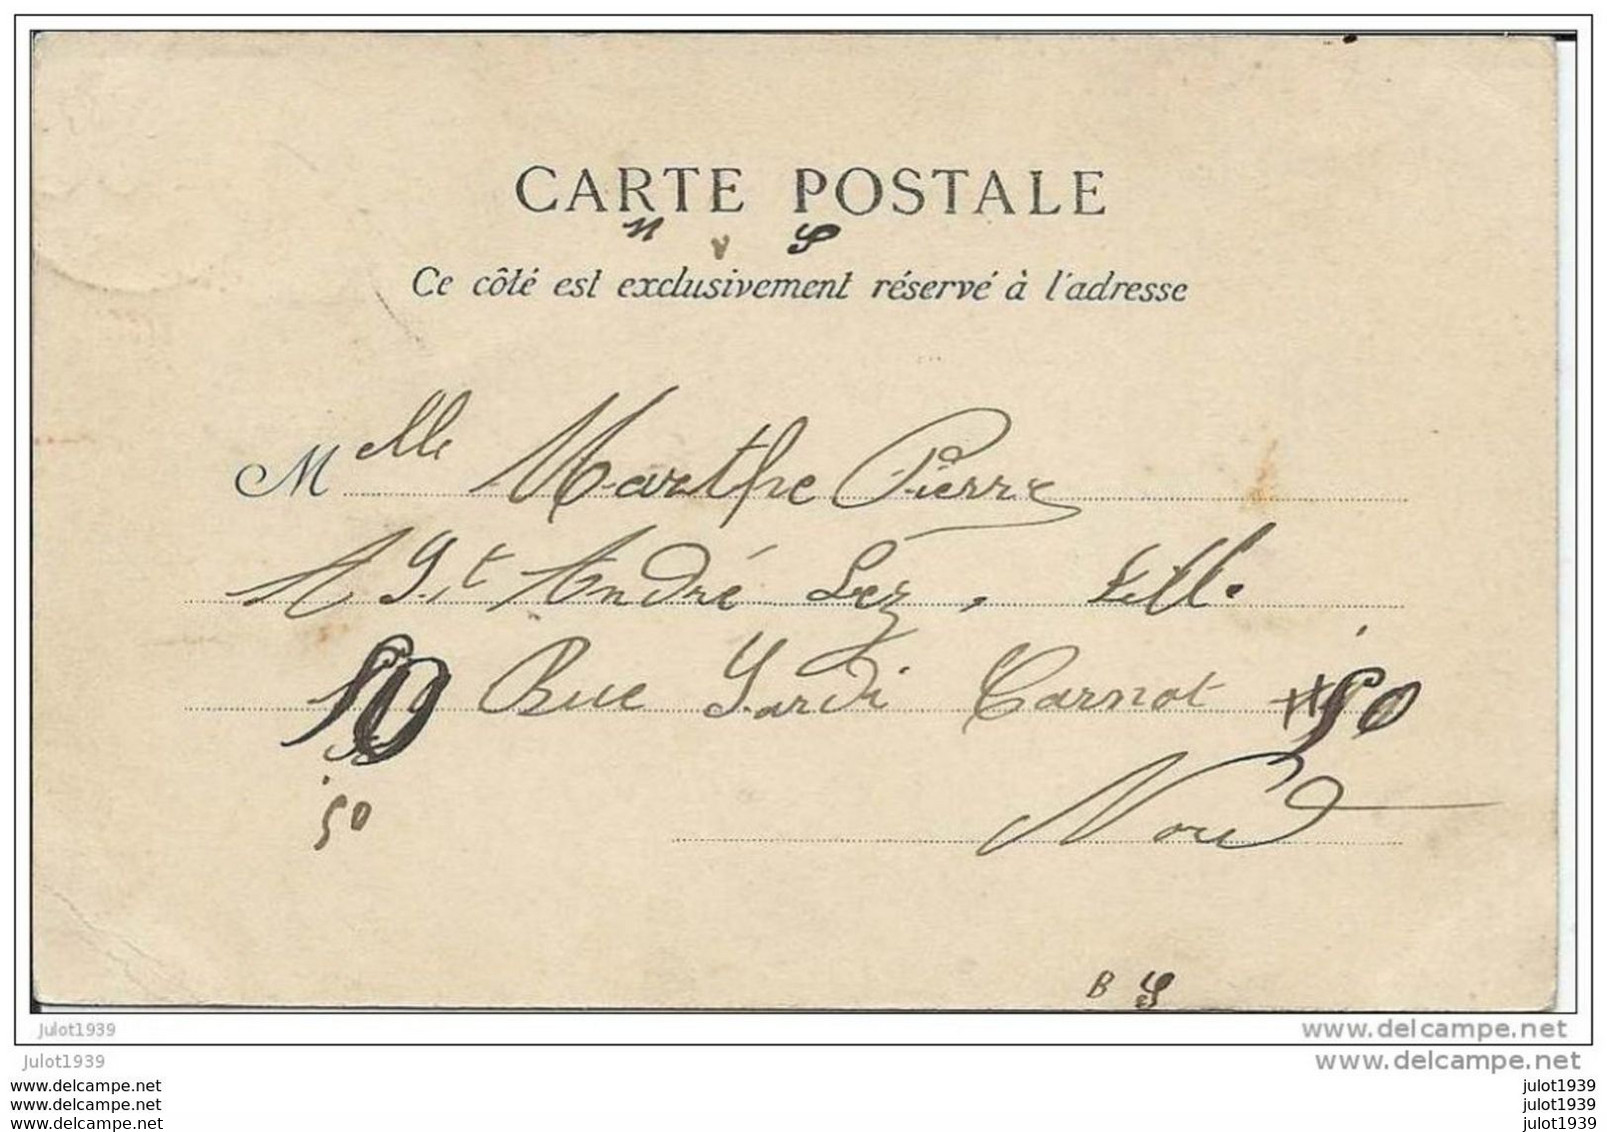 CARTE POSTALE
n v S
Ce côté est exclusivement réservé à l'adresse
Melle Marthe Pierre
A St André Lez. Lille
50 Rue Sardi Carnot 50
50
Nord
B S
julot1939 www.delcampe.net
julot1939 www.delcampe.net
www.delcampe.net julot1939
www.delcampe.net julot1939
www.delcampe.net julot1939